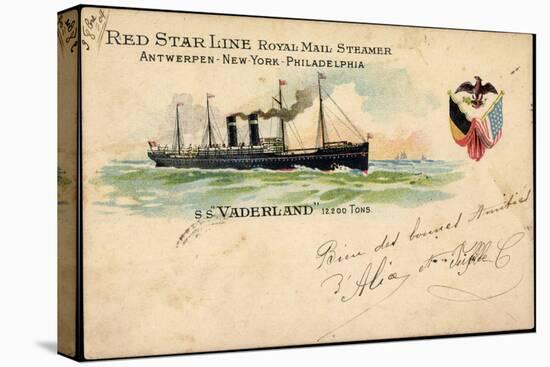 RED STAR LINE ROYAL MAIL STEAMER
ANTWERPEN - NEW-YORK - PHILADELPHIA
S.S. "VADERLAND" 12200 TONS.
Bien des bonnes Amitiés
d'Alice